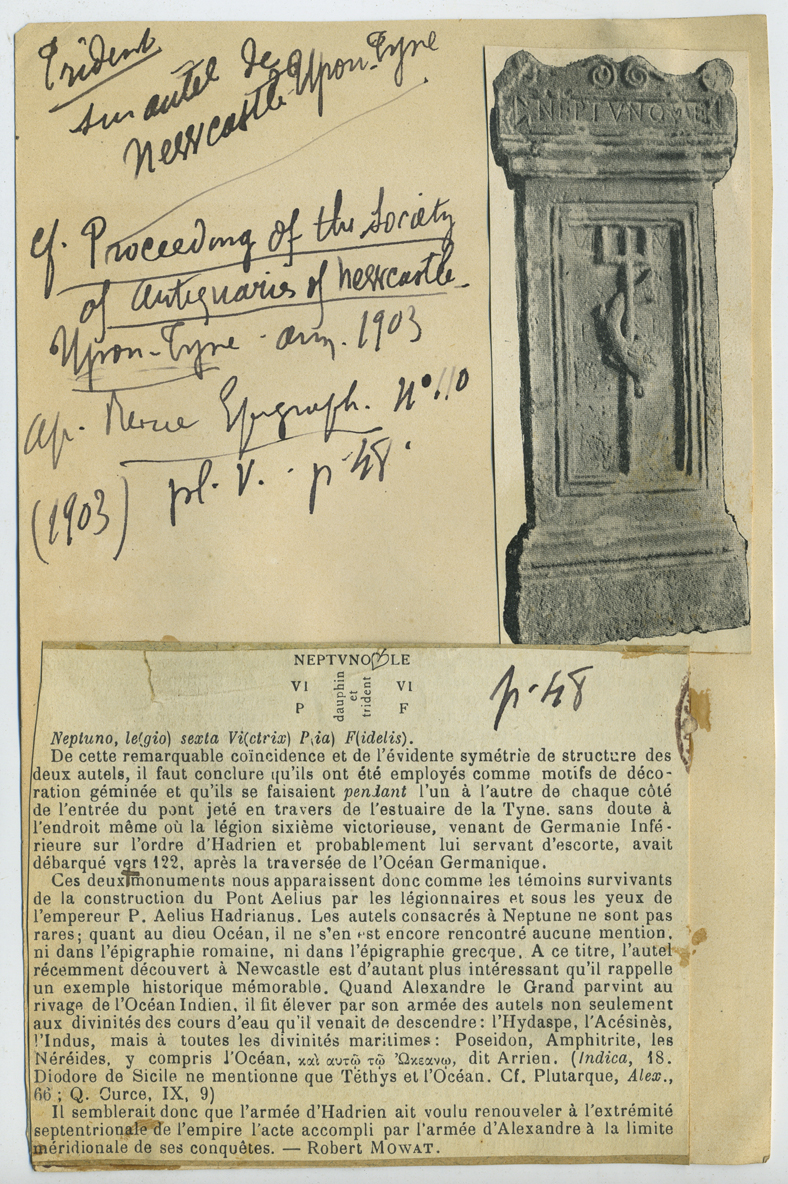 Trident
sur autel de
Newcastle-Upon-Tyne
cf. Proceeding of the Society
of Antiquaries of Newcastle
Upon-Tyne - ann. 1903
ap. Revue Epigraph. N° 110
(1903) pl. V. - p. 48.
NEPTVNO LE
NEPTVNO LE
VI VI
P F
dauphin
et
trident
p. 48
Neptuno, le(gio) sexta Vi(ctrix) P(ia) F(idelis).
De cette remarquable coïncidence et de l'évidente symétrie de structure des
deux autels, il faut conclure qu'ils ont été employés comme motifs de déco-
ration géminée et qu'ils se faisaient pendant l'un à l'autre de chaque côté
de l'entrée du pont jeté en travers de l'estuaire de la Tyne. sans doute à
l'endroit même où la légion sixième victorieuse, venant de Germanie Infé-
rieure sur l'ordre d'Hadrien et probablement lui servant d'escorte, avait
débarqué vers 122, après la traversée de l'Océan Germanique.
Ces deux monuments nous apparaissent donc comme les témoins survivants
de la construction du Pont Aelius par les légionnaires et sous les yeux de
l'empereur P. Aelius Hadrianus. Les autels consacrés à Neptune ne sont pas
rares; quant au dieu Océan, il ne s'en est encore rencontré aucune mention,
ni dans l'épigraphie romaine, ni dans l'épigraphie grecque. A ce titre, l'autel
récemment découvert à Newcastle est d'autant plus intéressant qu'il rappelle
un exemple historique mémorable. Quand Alexandre le Grand parvint au
rivage de l'Océan Indien, il fit élever par son armée des autels non seulement
aux divinités des cours d'eau qu'il venait de descendre : l'Hydaspe, l'Acésinès,
l'Indus, mais à toutes les divinités maritimes : Poseidon, Amphitrite, les
Néréides, y compris l'Océan, καὶ αυτῶ τῷ Ὠκεανῳ, dit Arrien. (Indica, 18.
Diodore de Sicile ne mentionne que Téthys et l'Océan. Cf. Plutarque, Alex.,
66 ; Q. Curce, IX, 9)
Il semblerait donc que l'armée d'Hadrien ait voulu renouveler à l'extrémité
septentrionale de l'empire l'acte accompli par l'armée d'Alexandre à la limite
méridionale de ses conquêtes. — Robert MOWAT.